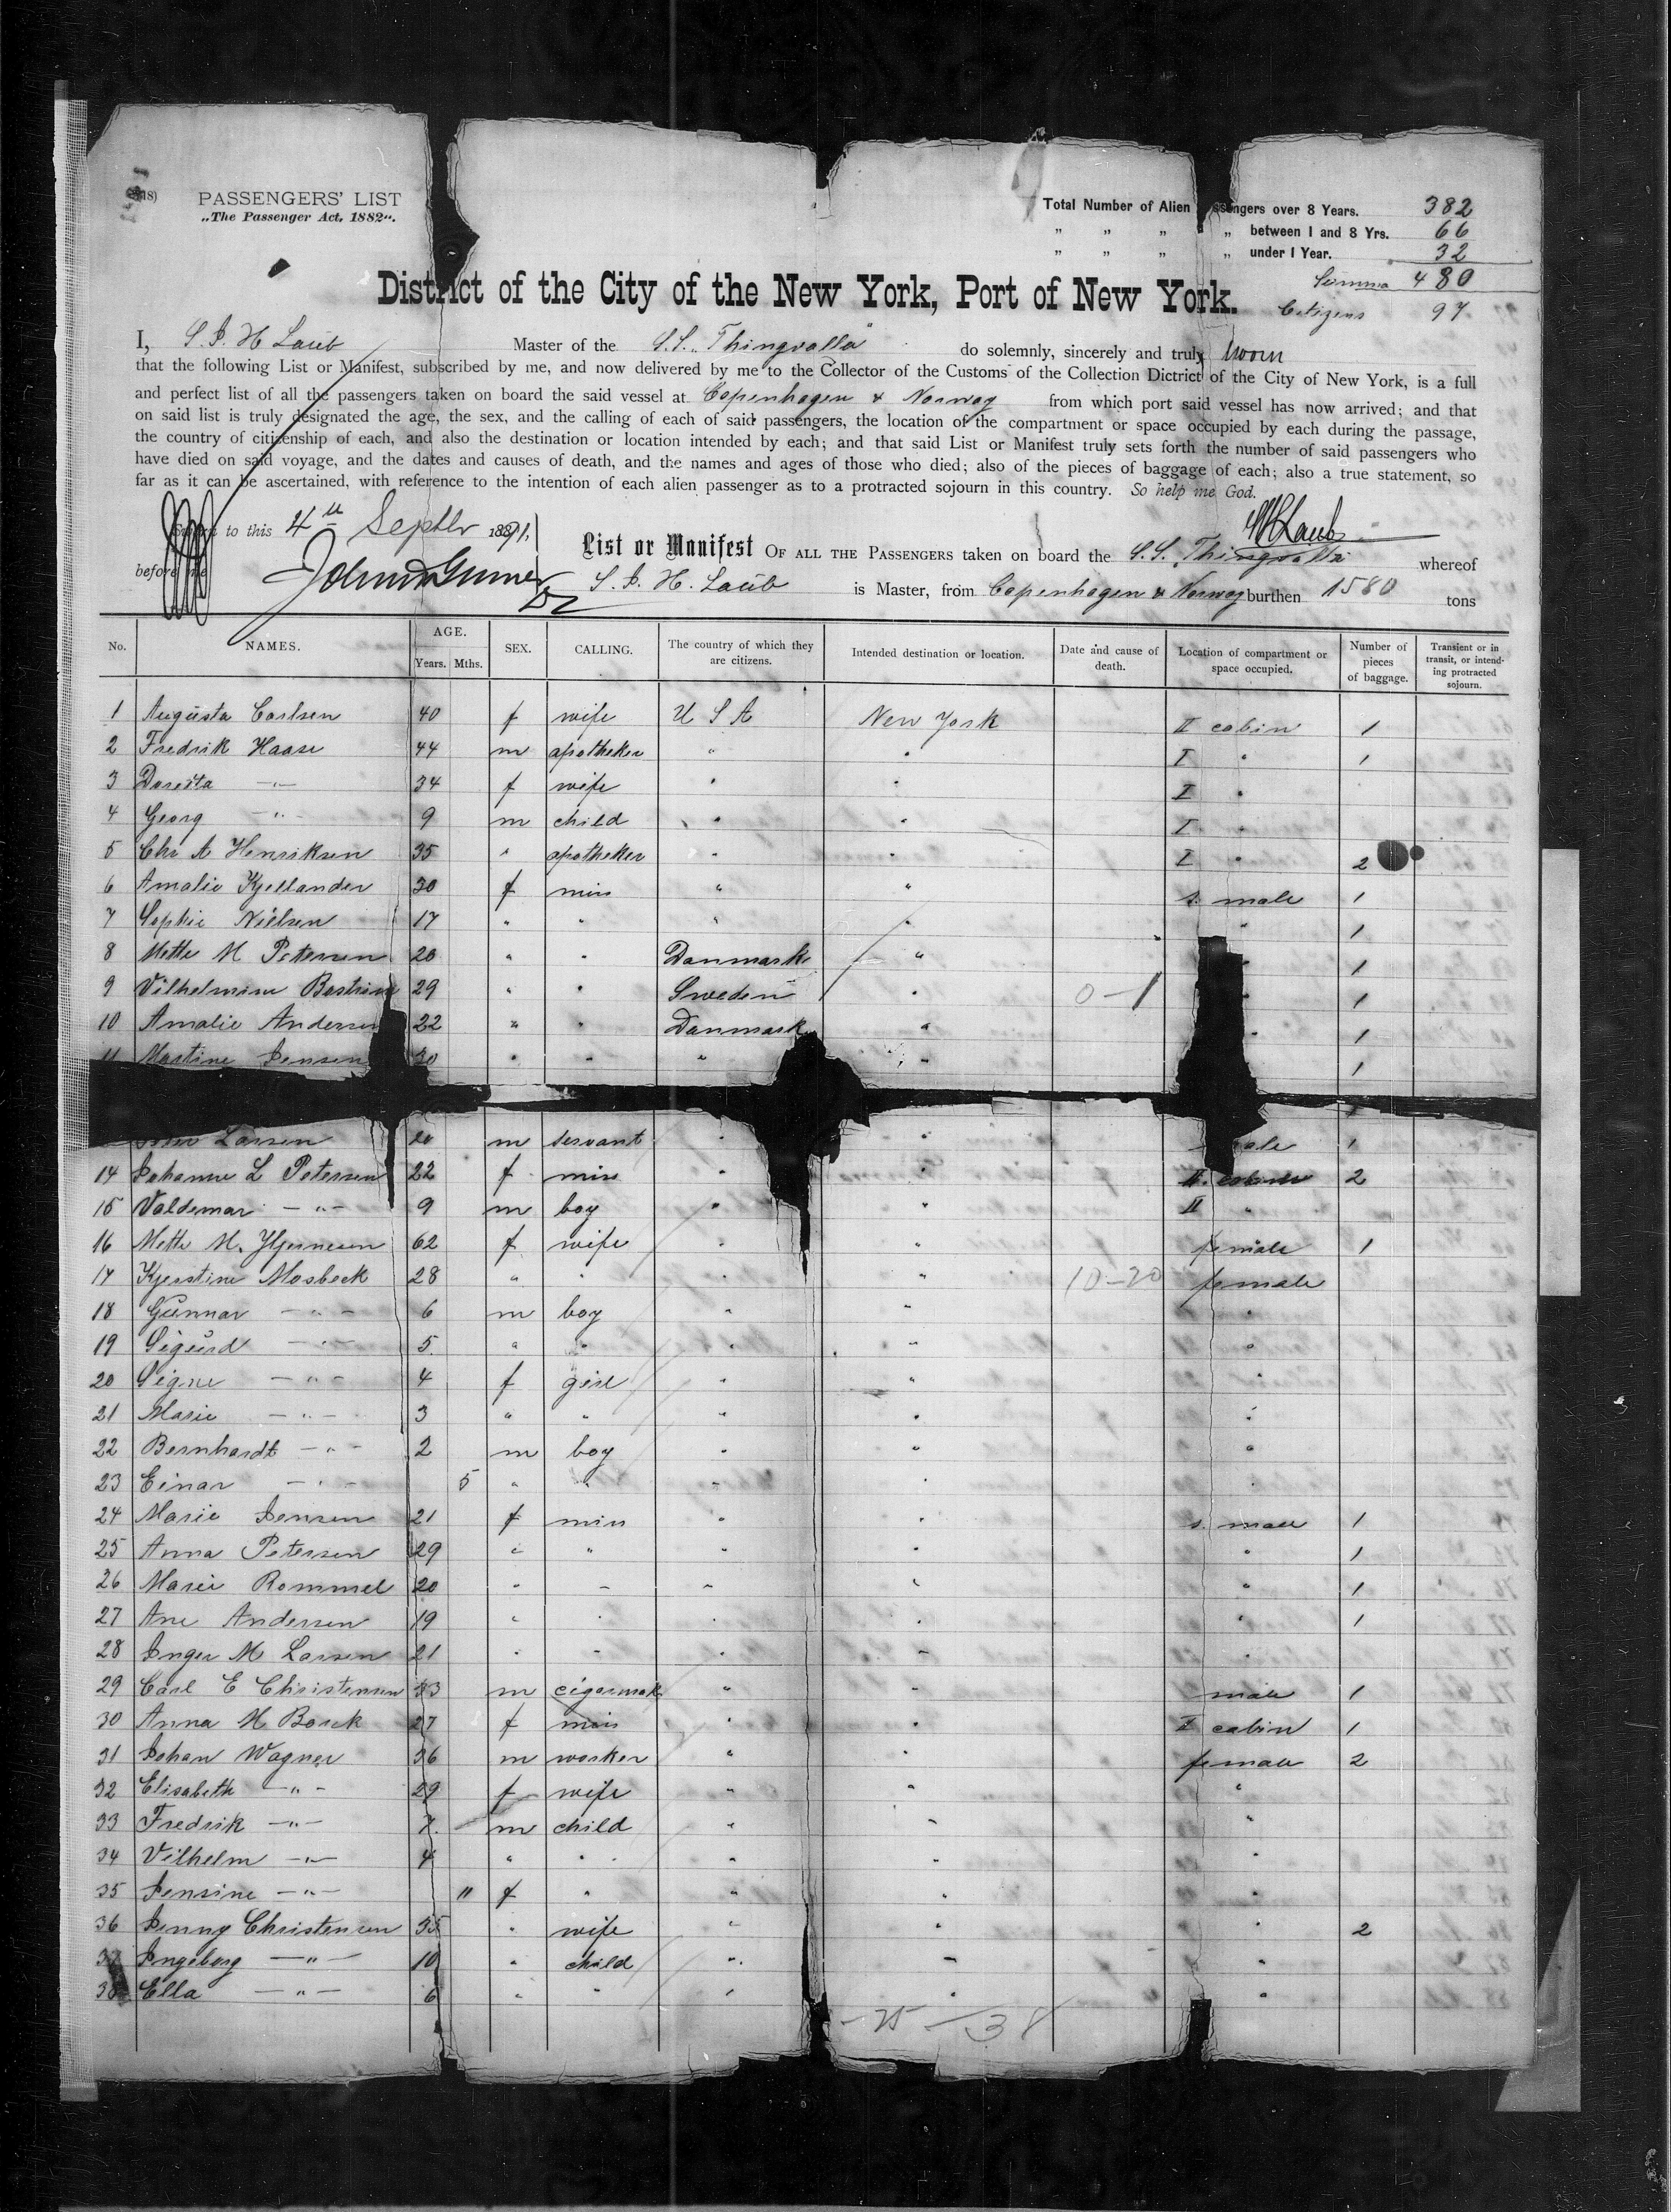 PASSENGERS' LIST
„The Passenger Act, 1882".
Total Number of Alien Passengers over 8 Years. 382
„ „ „ „ between 1 and 8 Yrs. 66
„ „ „ „ under 1 Year. 32
Summa 480
Citizens 97
District of the City of the New York, Port of New York.
I, S. J. H Laub Master of the S.S. „Thingvalla" do solemnly, sincerely and truly sworn
that the following List or Manifest, subscribed by me, and now delivered by me to the Collector of the Customs of the Collection Dictrict of the City of New York, is a full
and perfect list of all the passengers taken on board the said vessel at Copenhagen & Norway from which port said vessel has now arrived; and that
on said list is truly designated the age, the sex, and the calling of each of said passengers, the location of the compartment or space occupied by each during the passage,
the country of citizenship of each, and also the destination or location intended by each; and that said List or Manifest truly sets forth the number of said passengers who
have died on said voyage, and the dates and causes of death, and the names and ages of those who died; also of the pieces of baggage of each; also a true statement, so
far as it can be ascertained, with reference to the intention of each alien passenger as to a protracted sojourn in this country. So help me God.
to this 4th Septbr 1891. SJHLaub
before me
List or Manifest OF ALL THE PASSENGERS taken on board the S.S. Thingvalla whereof
S. J. H. Laub is Master, from Copenhagen & Norway burthen 1580 tons
No. NAMES. AGE. Years. Mths. SEX. CALLING. The country of which they are citizens. Intended destination or location. Date and cause of death. Location of compartment or space occupied. Number of pieces of baggage. Transient or in transit, or intending protracted sojourn.
1 Augusta Carlsen 40 f wife U S A New York II cabin 1
2 Fredrik Haase 44 m apotheker " " I " 1
3 Doretta —"— 34 f wife " " I "
4 Georg —"— 9 m child " " I "
5 Chr A Henriksen 35 " apotheker " " I " 2
6 Amalie Kjellander 30 f miss " " s. male 1
7 Sophie Nielsen 17 " " " " " 1
8 Mette M Petersen 20 " " Danmark " " 1
9 Vilhelmine 29 " " Sweden " 0-1 " 1
10 Amalie Andersen 22 " " Danmark " " 1
11 Martine Jensen 30 " " " " 1
Larsen 20 m servant " " male 1
14 Johanne L Petersen 22 f miss " " II cabin 2
15 Valdemar —"— 9 m boy " " II "
16 Mette M. 62 f wife " " female 1
17 Kjerstine Mosbeck 28 " " " " 10-20 female
18 Gunnar —"— 6 m boy " " "
19 Sigurd —"— 5 " " " " "
20 Signe —"— 4 f girl " " "
21 Marie —"— 3 " " " " "
22 Bernhardt —"— 2 m boy " " "
23 Einar —"— 5 " " " " "
24 Marie Jensen 21 f miss " " s. male 1
25 Anna Petersen 29 " " " " " 1
26 Marie Rommel 20 " " " " " 1
27 Ane Andersen 19 " " " " " 1
28 Inger M Larsen 21 " " " " "
29 Carl E Christensen 33 m cigarmak " " male 1
30 Anna M Borck 27 f miss " " II cabin 1
31 Johan Wagner 36 m worker " " female 2
32 Elisabeth —"— 29 f wife " " "
33 Fredrik —"— 7 m child " " "
34 Vilhelm —"— 4 " " " " "
35 Jensine —"— 11 f " " " "
36 Jenny Christensen 35 " wife " " " 2
37 Ingeborg —"— 10 " child " " "
38 Ella —"— 6 " " " " "
-25-38